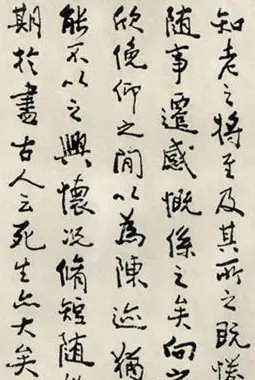 知老之將至及其所之既惓
随事遷感慨係之矣向之
欣俛仰之閒以為陳迹猶
能不以之興懷況脩短随
期於盡古人云死生亦大矣